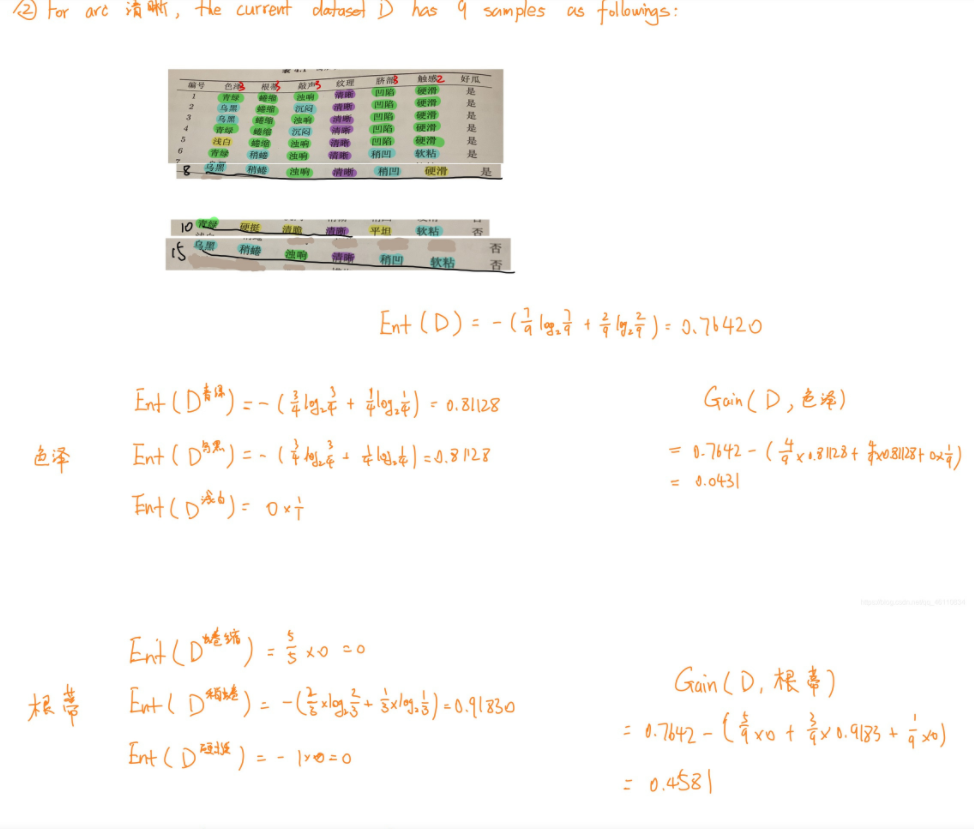 ② For arc 清晰, the current dataset D has 9 samples as followings:
编号 色泽3 根蒂3 敲声3 纹理 脐部3 触感2 好瓜
1 青绿 蜷缩 浊响 清晰 凹陷 硬滑 是
2 乌黑 蜷缩 沉闷 清晰 凹陷 硬滑 是
3 乌黑 蜷缩 浊响 清晰 凹陷 硬滑 是
4 青绿 蜷缩 沉闷 清晰 凹陷 硬滑 是
5 浅白 蜷缩 浊响 清晰 凹陷 硬滑 是
6 青绿 稍蜷 浊响 清晰 稍凹 软粘 是
8 乌黑 稍蜷 浊响 清晰 稍凹 硬滑 是
10 青绿 硬挺 清脆 清晰 平坦 软粘 否
否
15 乌黑 稍蜷 浊响 清晰 稍凹 软粘 否
Ent(D) = -(7/9 log₂ 7/9 + 2/9 log₂ 2/9) = 0.76420
色泽
Ent(D^青绿) = -(3/4 log₂ 3/4 + 1/4 log₂ 1/4) = 0.81128
Ent(D^乌黑) = -(3/4 log₂ 3/4 + 1/4 log₂ 1/4) = 0.81128
Ent(D^浅白) = 0 × 1/1
Gain(D, 色泽)
= 0.7642 - (4/9 × 0.81128 + 4/9 × 0.81128 + 0 × 1/9)
= 0.0431
根蒂
Ent(D^蜷缩) = 5/5 × 0 = 0
Ent(D^稍蜷) = -(2/3 × log₂ 2/3 + 1/3 × log₂ 1/3) = 0.91830
Ent(D^硬挺) = - 1 × 0 = 0
Gain(D, 根蒂)
= 0.7642 - (5/9 × 0 + 3/9 × 0.9183 + 1/9 × 0)
= 0.4581